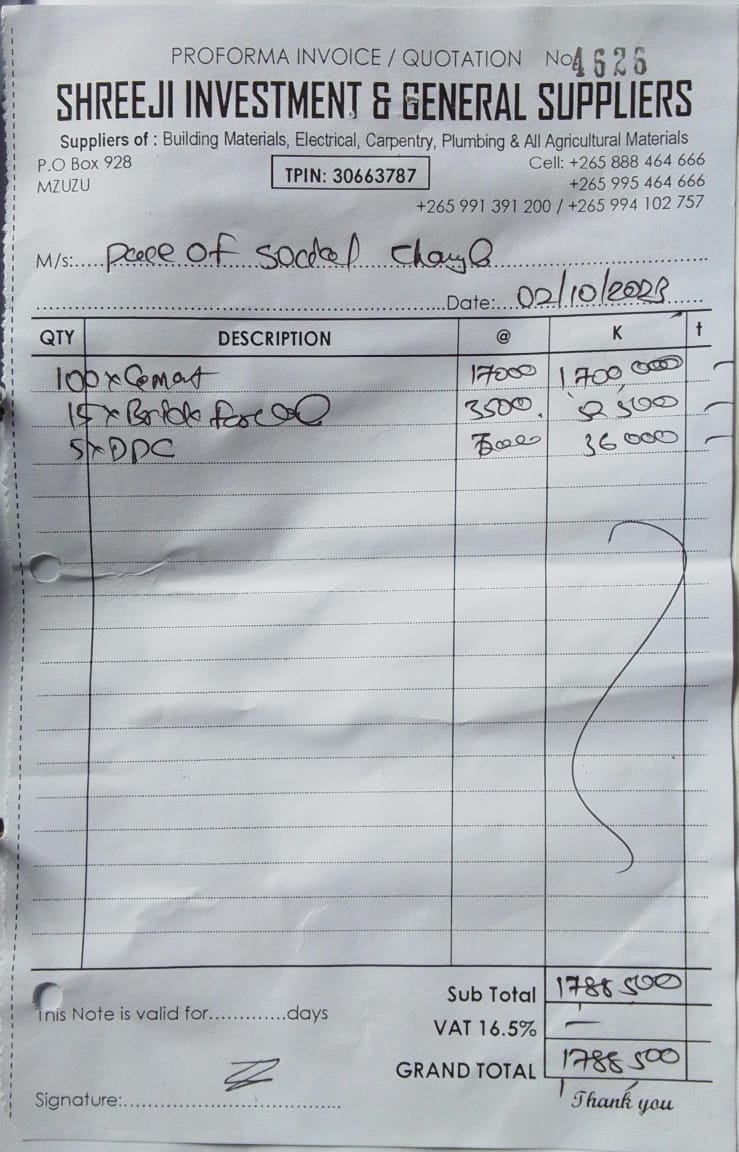 PROFORMA INVOICE / QUOTATION No 4626
SHREEJI INVESTMENT & GENERAL SUPPLIERS
Suppliers of : Building Materials, Electrical, Carpentry, Plumbing & All Agricultural Materials
P.O Box 928
MZUZU
TPIN: 30663787
Cell: +265 888 464 666
+265 995 464 666
+265 991 391 200 / +265 994 102 757
M/s: of social change
Date: 02/10/2023
QTY DESCRIPTION @ K t
100 x Cement 17000 1 700 000 -
15 x Brick force 3500. 52 500 -
5 x DPC 36 000 -
Sub Total 1788 500
This Note is valid for.............days
VAT 16.5% -
GRAND TOTAL 1788 500
Signature:
Thank you